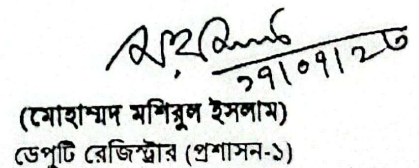 ২৭/০৭/২৩
(মোহাম্মদ মশিরুল ইসলাম)
ডেপুটি রেজিস্ট্রার (প্রশাসন-১)